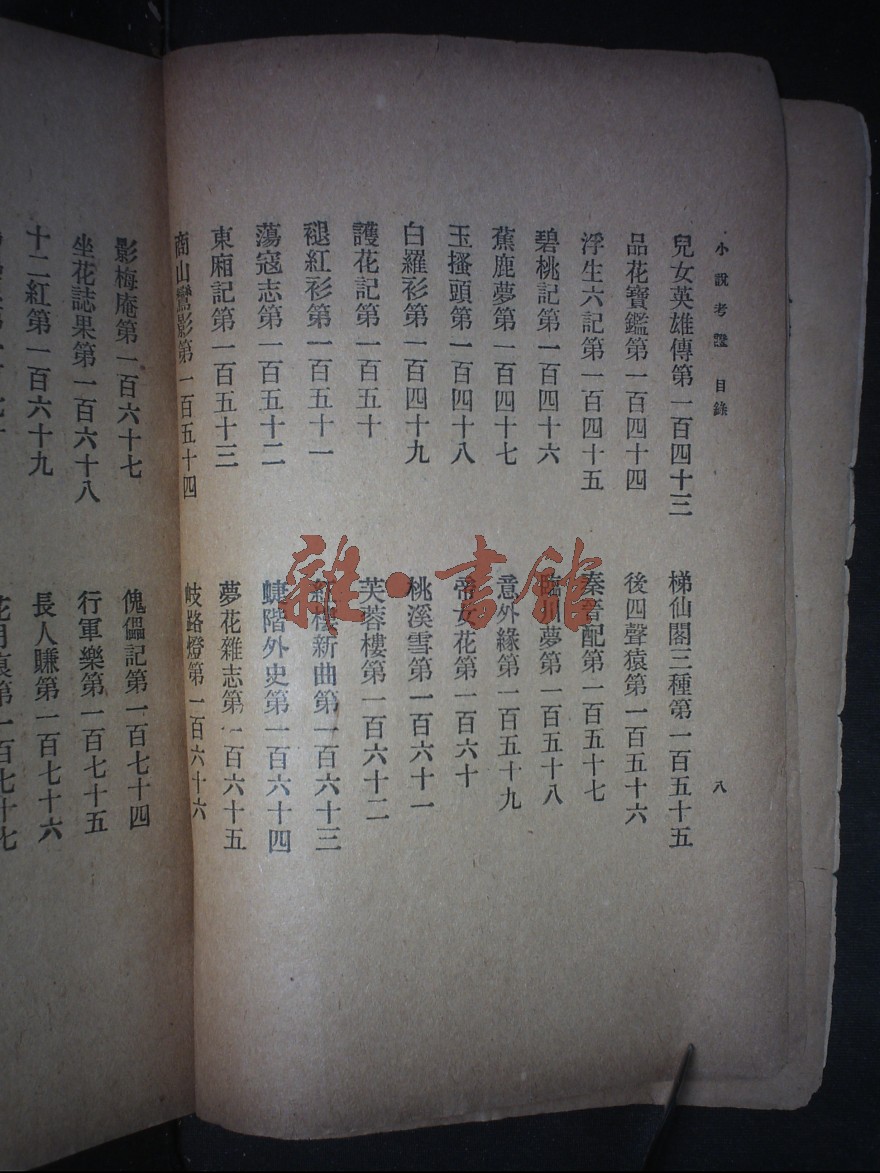 小說考證 目錄
八
兒女英雄傳第一百四十三
品花寶鑑第一百四十四
浮生六記第一百四十五
碧桃記第一百四十六
蕉鹿夢第一百四十七
玉搔頭第一百四十八
白羅衫第一百四十九
護花記第一百五十
褪紅衫第一百五十一
蕩寇志第一百五十二
東廂記第一百五十三
商山鸞影第一百五十四
梯仙閣三種第一百五十五
後四聲猿第一百五十六
秦晉配第一百五十七
臨川夢第一百五十八
意外緣第一百五十九
帝女花第一百六十
桃溪雪第一百六十一
芙蓉樓第一百六十二
紅樓新曲第一百六十三
蜨階外史第一百六十四
夢花雜志第一百六十五
岐路燈第一百六十六
影梅庵第一百六十七
坐花誌果第一百六十八
十二紅第一百六十九
傀儡記第一百七十四
行軍樂第一百七十五
長人賺第一百七十六
花月痕第一百七十七
雜·書館